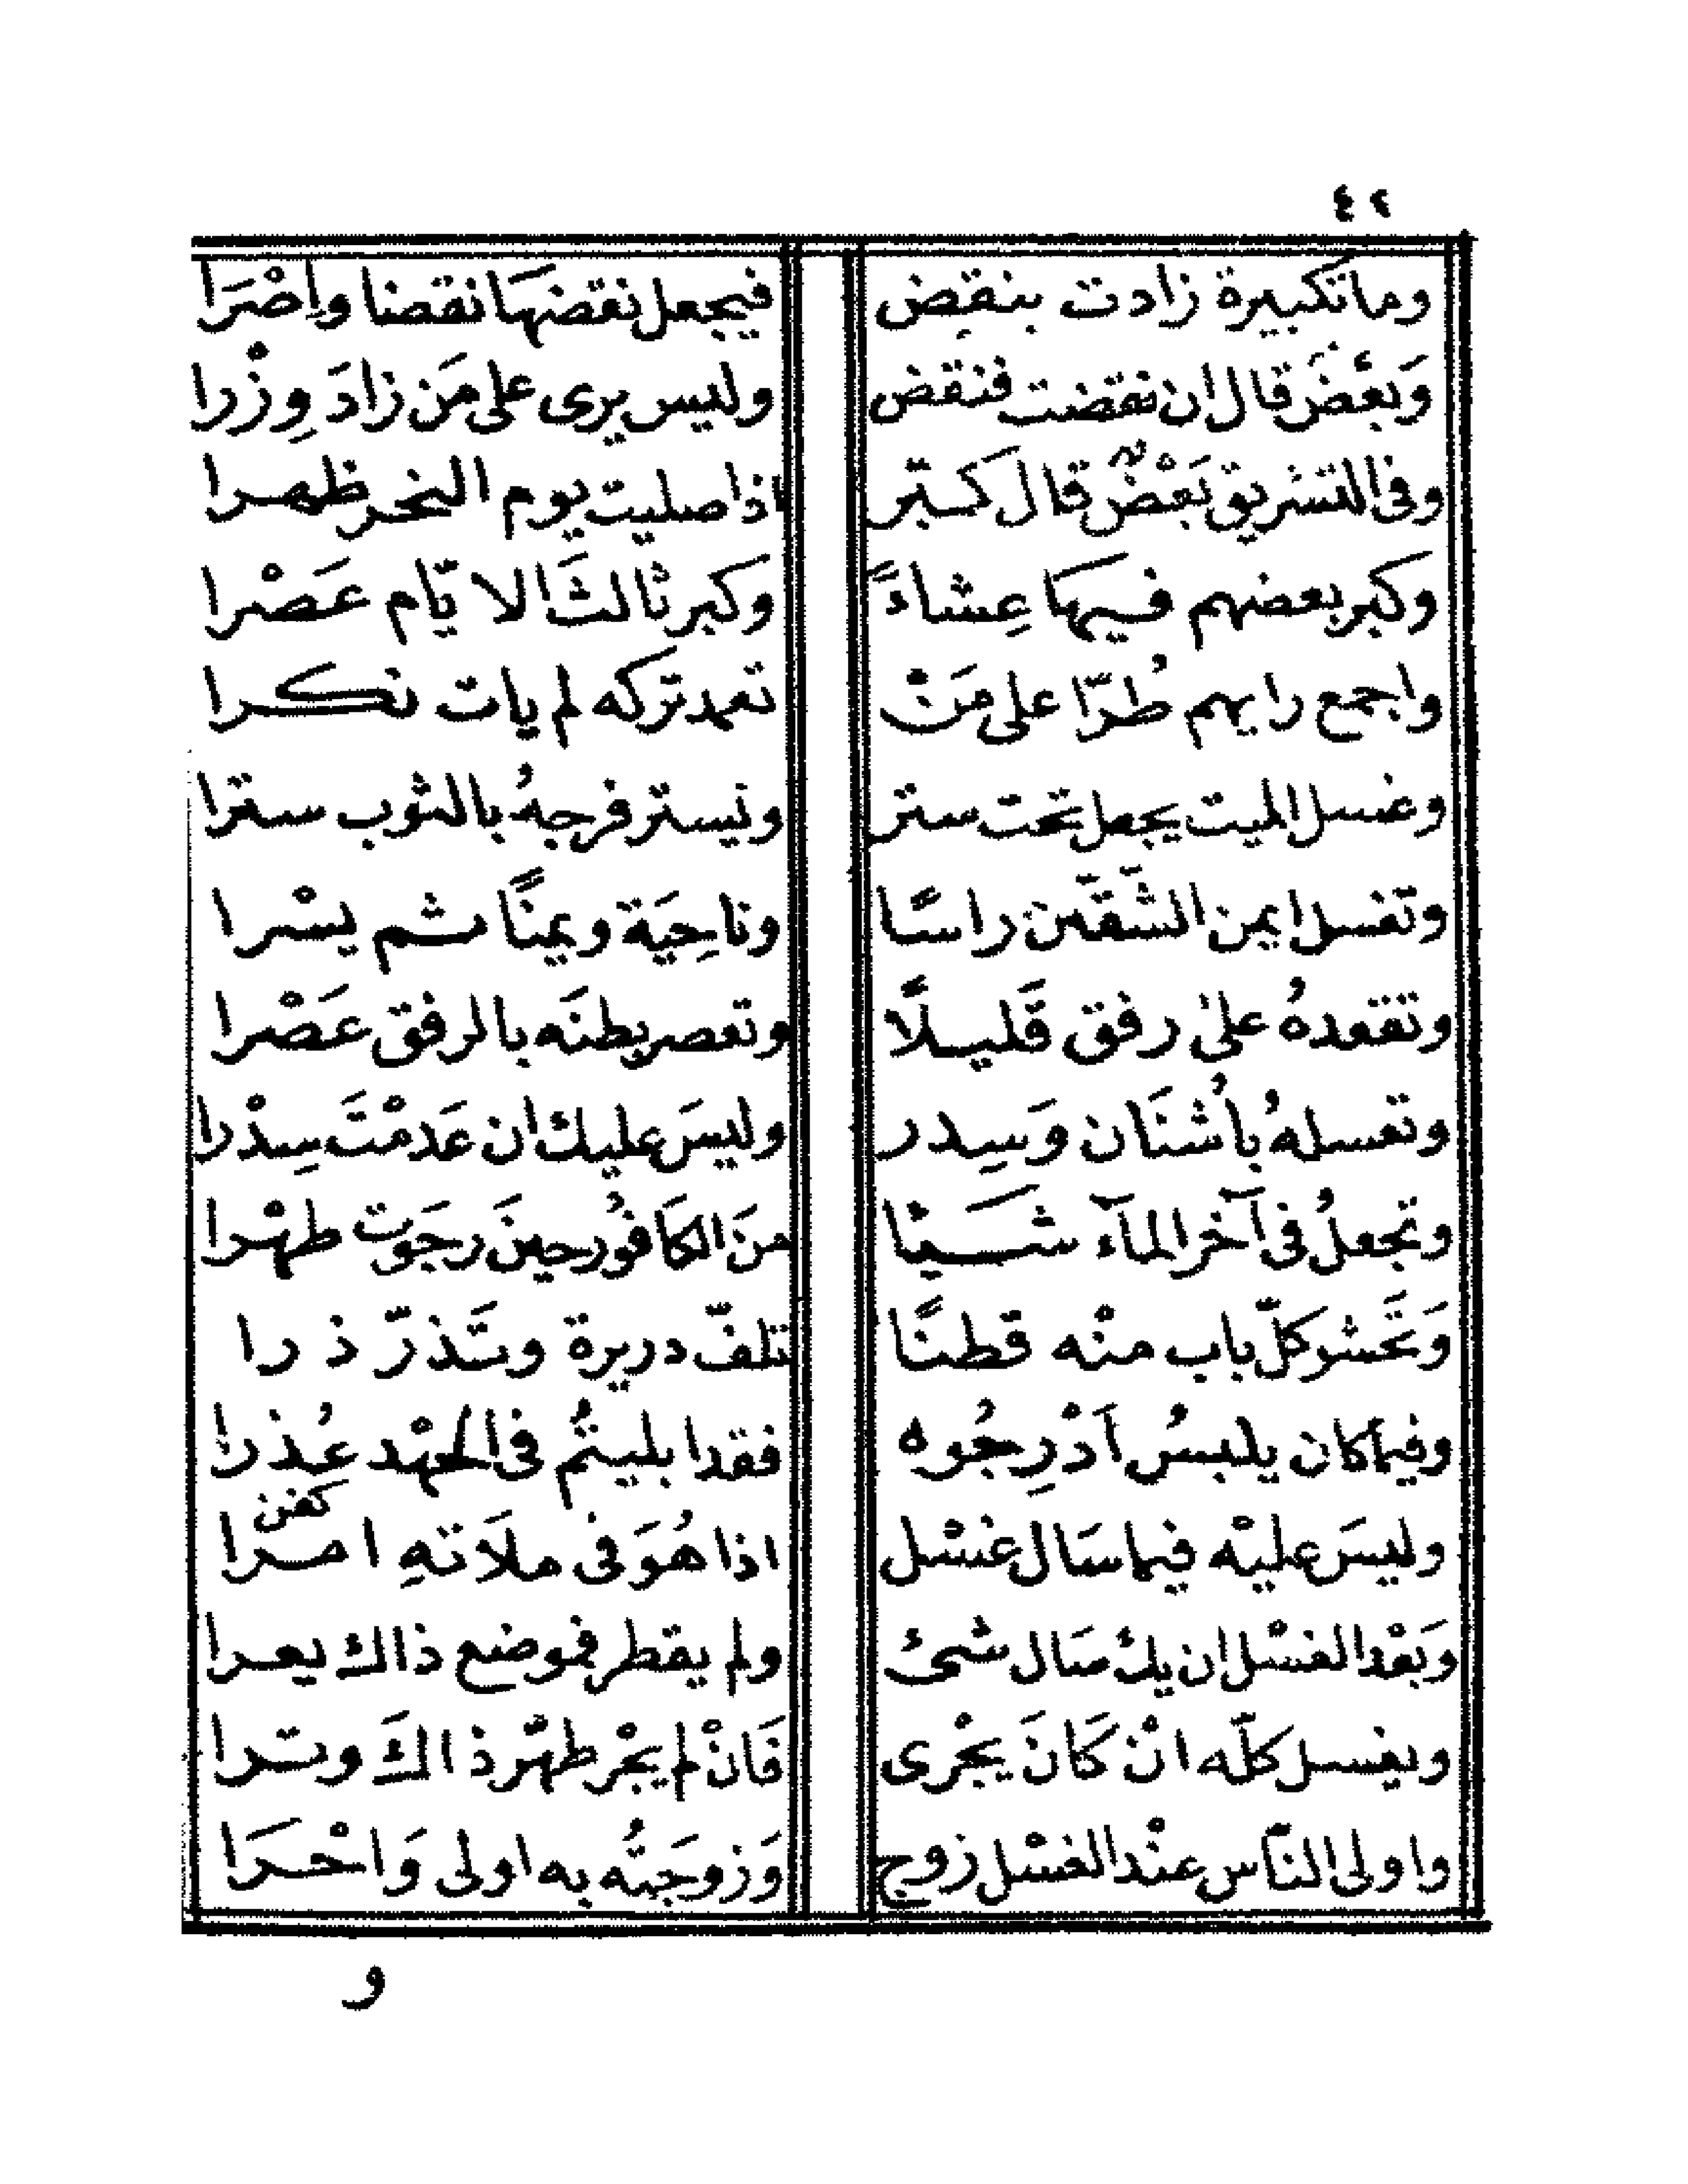 ٤٢
وما تكبيرة زادت بنقض فيجعل نقضها نقضا وإصْرَا
وَبعْضَ قال ان نقضت فنقض وليس يرى على مَن زادَ وِزْرا
وفى التشريق بَعْضٌ قالَ كَبّر اذا صليت يوم النحر ظهرا
وكبر بعضهم فيها عِشاءً وكبر ثالثَ الايّام عَصْرا
واجمع رايهم طُرّا على مَنْ تعمد تركه لم يات نكرا
وغسل الميت يجعل تحت ستر ونيستر فرجهُ بالثوب سترا
وتغسل ايمن الشّقّين راسًا وناحِيَة ويمنًا ثم يسْرا
وتقعدهُ على رفق قَليلًا وتعصر بطنَه بالرفق عَصْرا
وتغسلهُ بأُشنَان وَسِدر وليسَ عليك ان عَدمْتَ سِدْرا
وتجعلُ فى آخر المآء شَيئا منَ الكَافُور حينَ رجَوت طهْرا
وَتَحشو كلّ باب منْه قطنًا تلفّ دريرة وتَذرّ ذرا
وفيما كان يلبسُ اَدْرِجُوه فقد ابليتُم فى الجهْد عُذرا
وليسَ عليْه فيما سَال غسْل اذا هُوَ فى ملَاتهِ امرا
كفن
وَبَعْد الغسْل ان يك سَال شىئ ولم يقطر فموضع ذاك يعرا
ويغسل كلّه انْ كَانَ يجْرى فَانْ لم يجْر طهّر ذاكَ وترا
واولى النّاس عنْد الغسْل زوج وَزوجَتُه به اولى وَاحْرَا
و